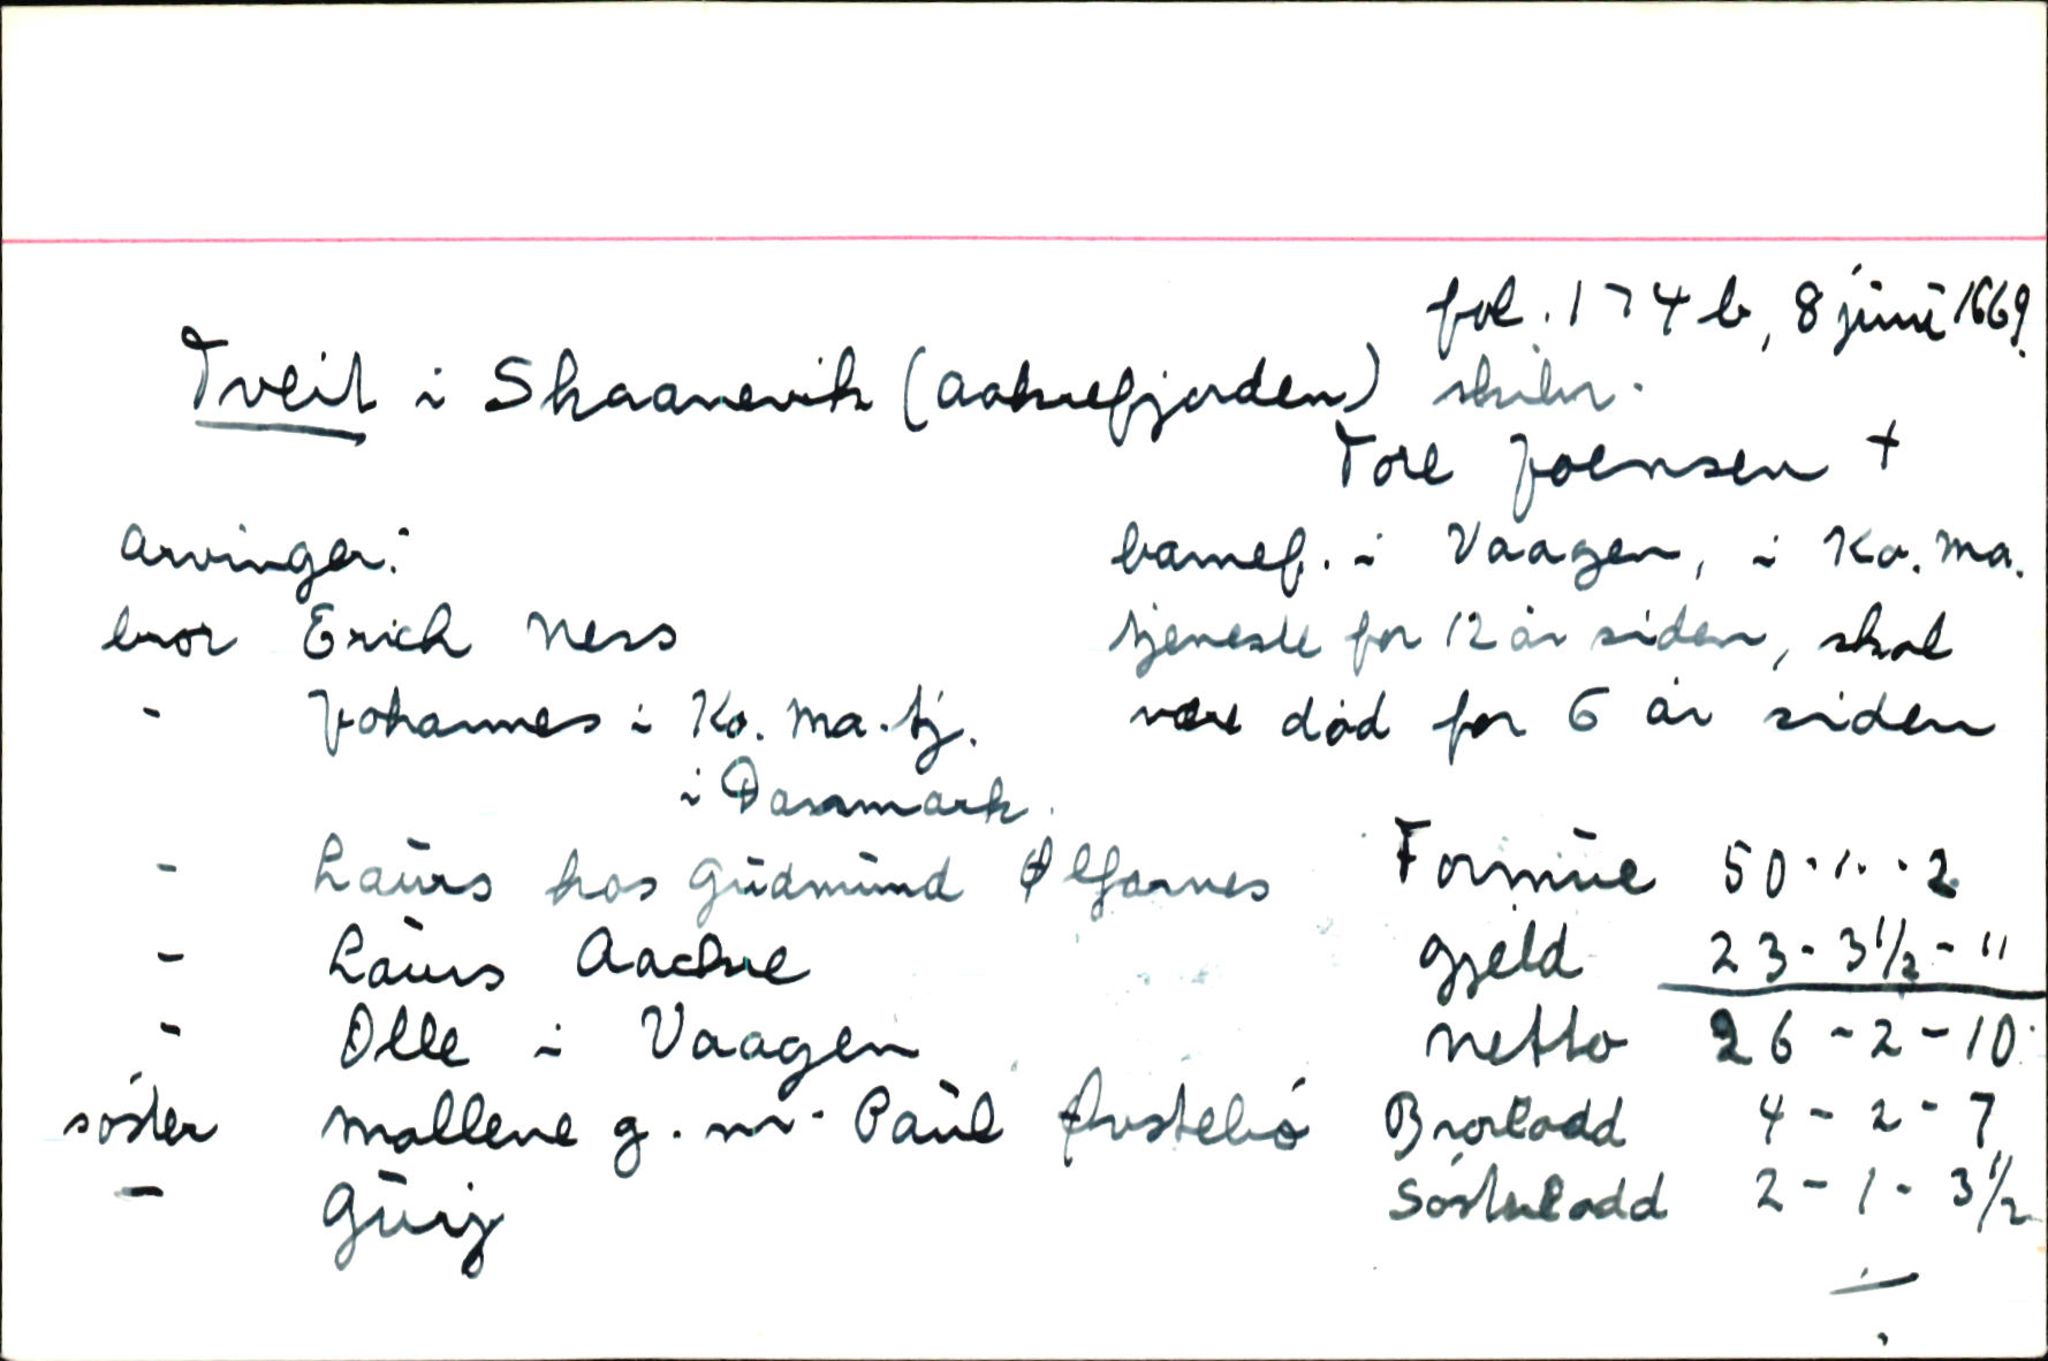 fol. 174 b, 8 juni 1669.
Tveit i Skaanevik (Aakrefjorden) skiler.
Tore Joensen +
Arvinger:
barnef. i Vaagen, i Ko. Ma.
bror Erich Ness
tjeneste for 12 år siden, skal
- Johannes i Ko. Ma. tj.
være död for 6 år siden
i Danmark.
- Laurs hos Gudmund Ølfarnes
Formue 50 - 1 - 2
- Laurs Aachre
Gjeld 23 - 3 1/2 - "
- Olle i Vaagen
Netto 26 - 2 - 10
söster Mallene g. m. Paul Øvstebö
Brorlodd 4 - 2 - 7
- Gurj
Sösterlodd 2 - 1 - 3 1/2